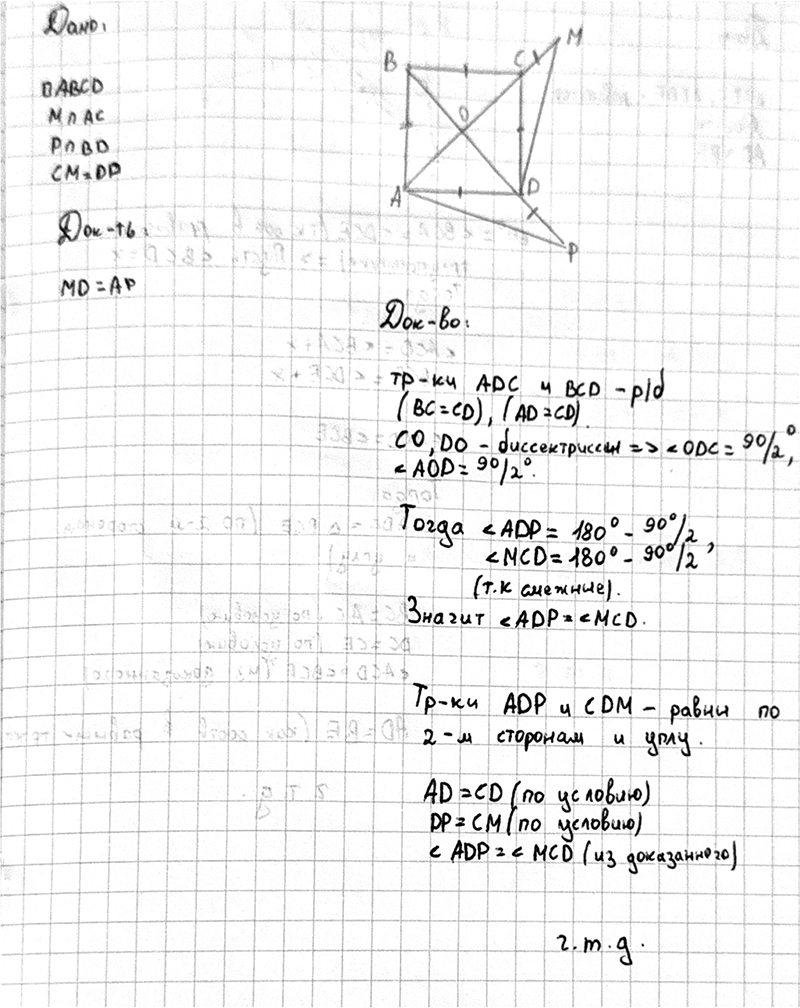 Дано:
□ABCD
M ∩ AC
P ∩ BD
CM=DP
Док-ть:
MD=AP
B
C
M
O
A
D
P
Док-во:
тр-ки ADC и BCD - р/б
(BC=CD), (AD=CD).
CO, DO - биссектриссы => <ODC= 90/2°,
<AOD= 90/2°.
Тогда <ADP= 180° - 90°/2,
<MCD=180° - 90°/2
(т.к смежные).
Значит <ADP=<MCD.
Тр-ки ADP и CDM - равны по
2-м сторонам и углу.
AD=CD (по условию)
DP=CM (по условию)
< ADP=< MCD (из доказанного)
ч.т.д.